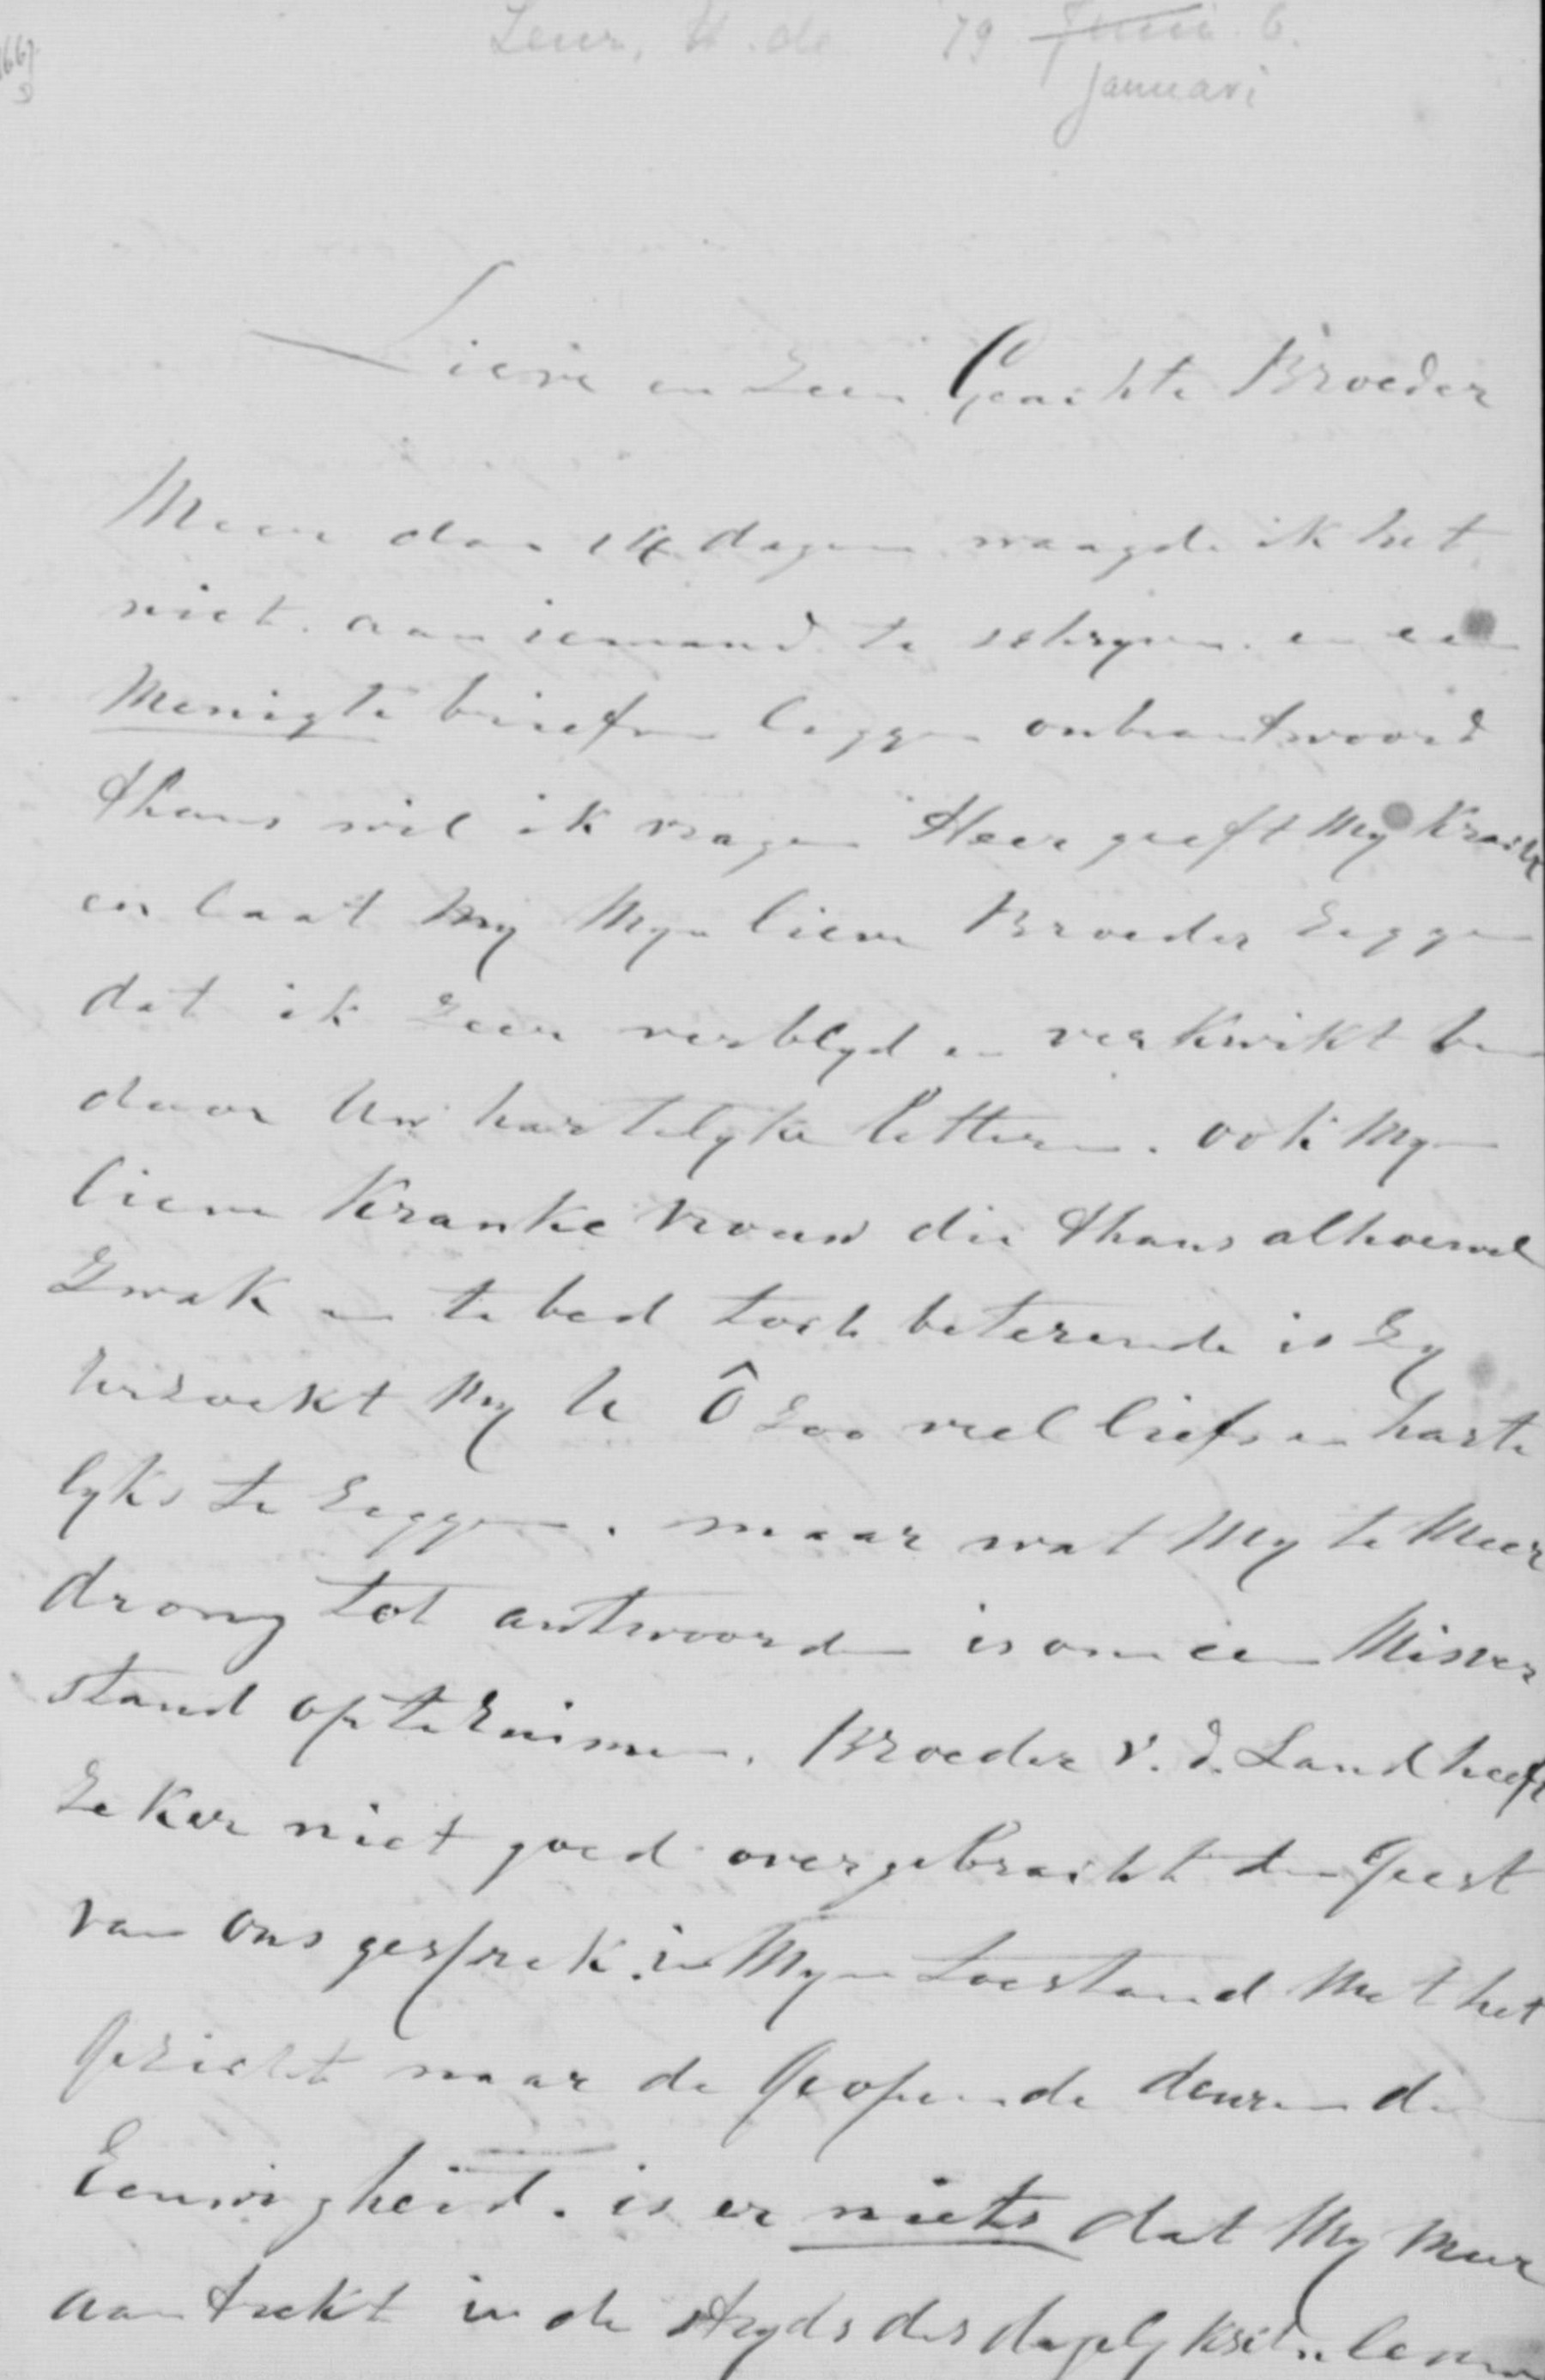 Leur, H. de 79 Juni 6.
Januari
Lieve en Zeer Geachte Broeder
Meer dan 14 dagen waagde ik het
niet aan iemand te schryven en een
Menigte brieven leggen onbeantwoord
thans wil ik vragen Heer geeft My Kracht
en laat my Myn lieve Broeder Zeggen
dat ik Zeer verblyd en verkwikt ben
door Uw hartelyke letteren. ook Myn
lieve Kranke vrouw die thans alhoewel
Zwak en te bed toch beterende is Zy
verzoekt My U Ô Zoo veel liefs en harte
lyks te Zeggen. maar wat My te Meer
drong tot antwoorden is om een Misver
stand op te Ruimen. Broeder v. d. Land heeft
Zeker niet goed overgebracht den Geest
van ons gesprek. in Myn toestand Met het
Gezicht naar de Geopende deuren der
Eeuwigheid. is er niets dat My Meer
aantrekt in de stryds des dagelyksche leven